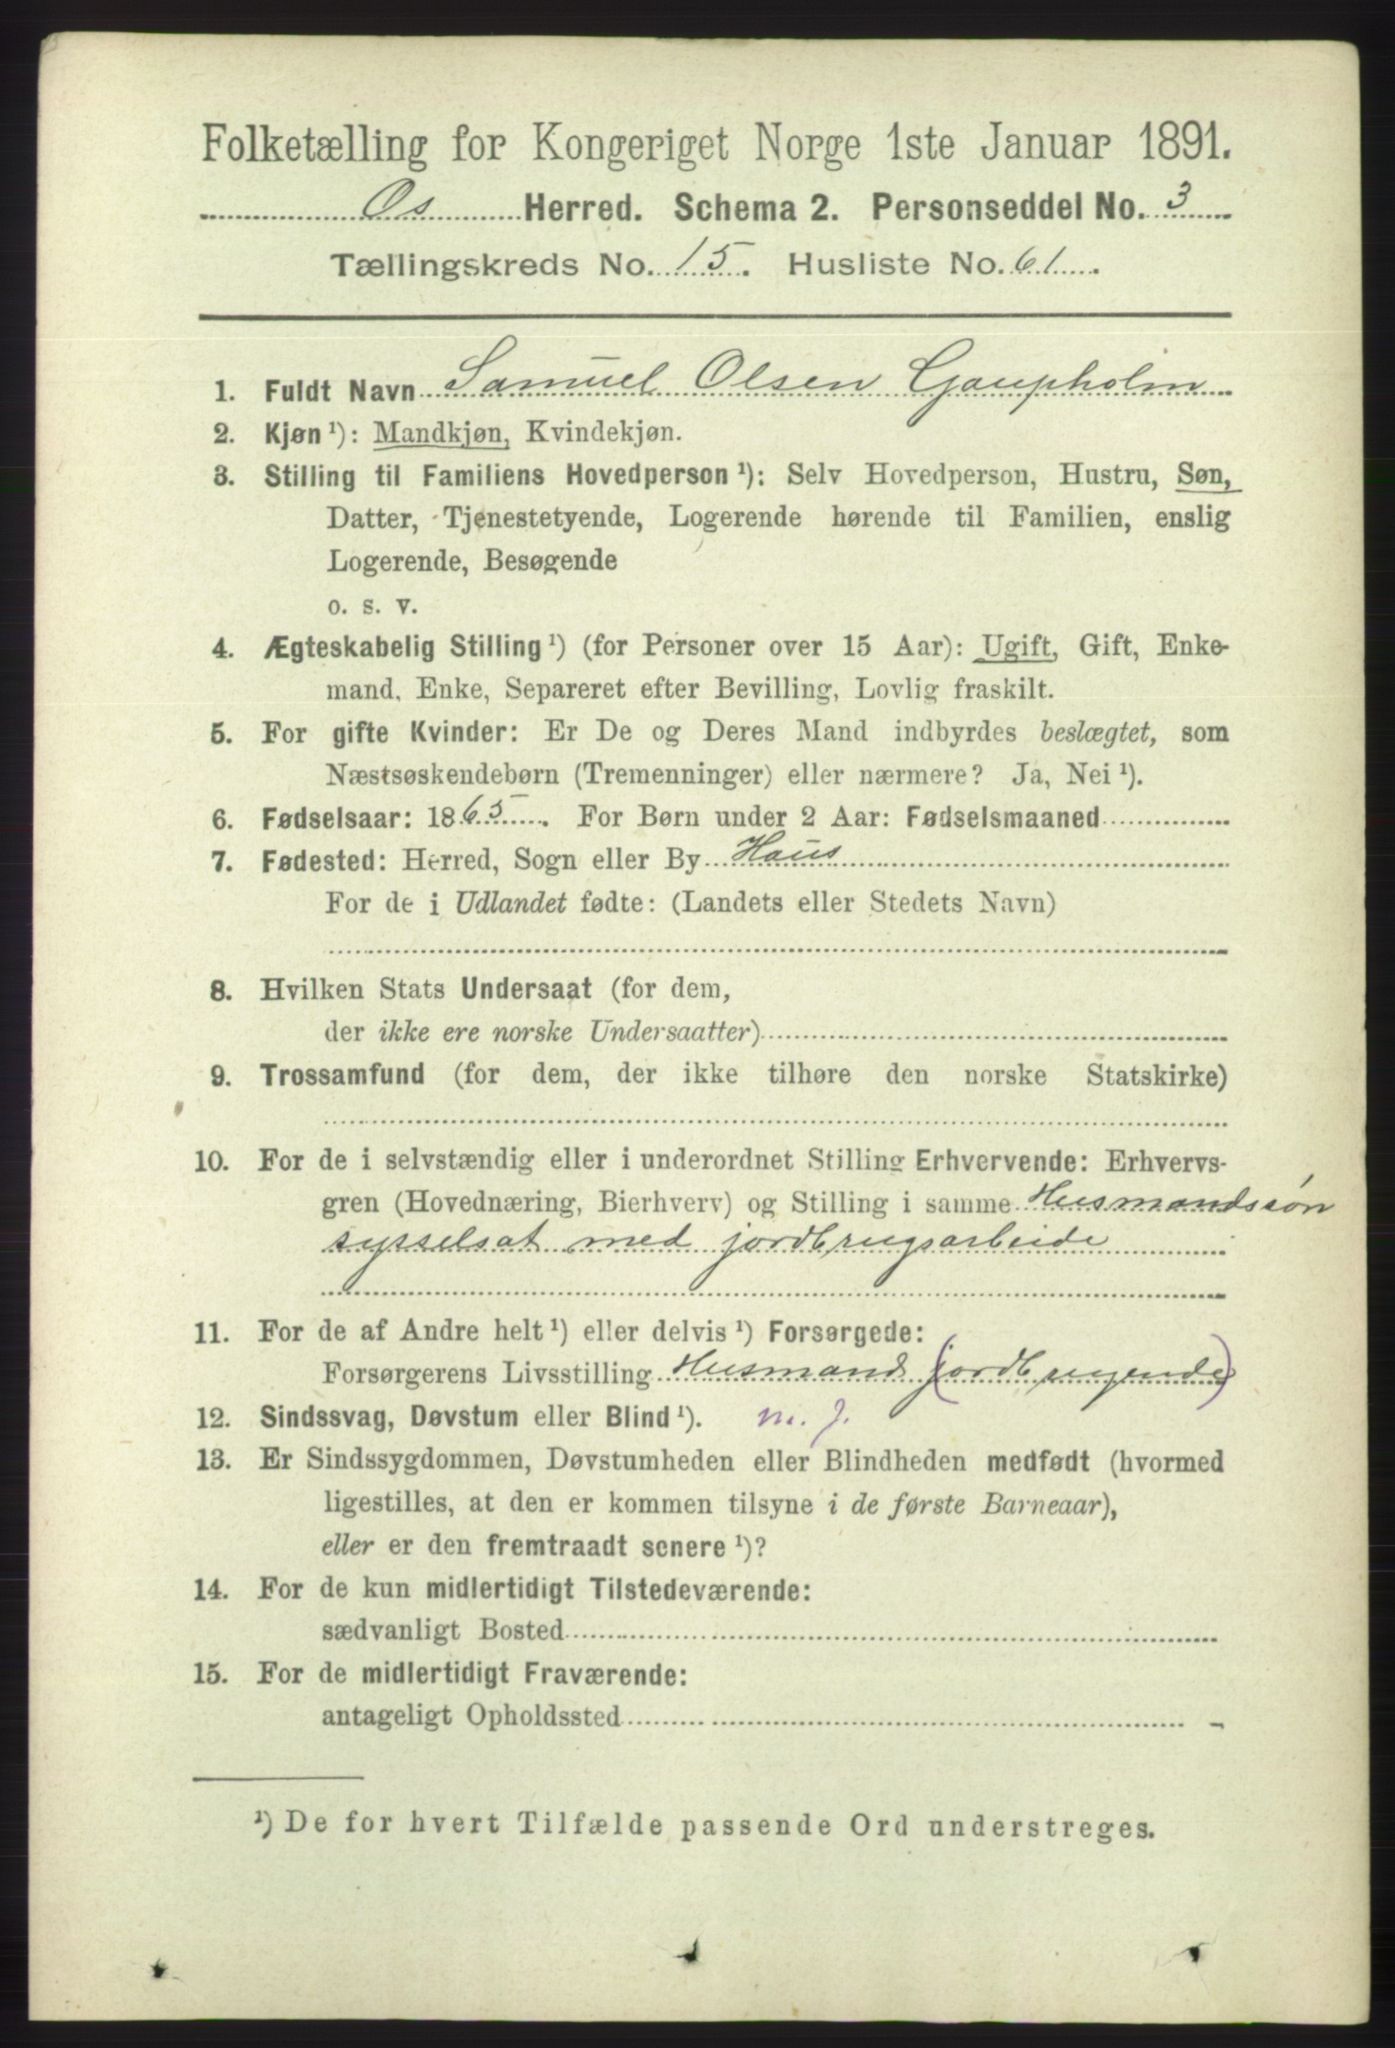 Folketælling for Kongeriget Norge 1ste Januar 1891.
Os Herred. Schema 2. Personseddel No. 3
Tællingskreds No. 15. Husliste No. 61.
1. Fuldt Navn Samuel Olsen Gaupholm
2. Kjøn ¹): Mandkjøn, Kvindekjøn.
3. Stilling til Familiens Hovedperson ¹): Selv Hovedperson, Hustru, Søn,
Datter, Tjenestetyende, Logerende hørende til Familien, enslig
Logerende, Besøgende
o. s. v.
4. Ægteskabelig Stilling ¹) (for Personer over 15 Aar): Ugift, Gift, Enke-
mand, Enke, Separeret efter Bevilling, Lovlig fraskilt.
5. For gifte Kvinder: Er De og Deres Mand indbyrdes beslægtet, som
Næstsøskendebørn (Tremenninger) eller nærmere? Ja, Nei ¹).
6. Fødselsaar: 1865. For Børn under 2 Aar: Fødselsmaaned
7. Fødested: Herred, Sogn eller By Haus
For de i Udlandet fødte: (Landets eller Stedets Navn)
8. Hvilken Stats Undersaat (for dem,
der ikke ere norske Undersaatter)
9. Trossamfund (for dem, der ikke tilhøre den norske Statskirke)
10. For de i selvstændig eller i underordnet Stilling Erhvervende: Erhvervs-
gren (Hovednæring, Bierhverv) og Stilling i samme Husmandssøn
sysselsat med jordbrugsarbeide
11. For de af Andre helt ¹) eller delvis ¹) Forsørgede:
Forsørgerens Livsstilling Husmand (jordbrugende)
12. Sindssvag, Døvstum eller Blind ¹). m. J.
13. Er Sindssygdommen, Døvstumheden eller Blindheden medfødt (hvormed
ligestilles, at den er kommen tilsyne i de første Barneaar),
eller er den fremtraadt senere ¹)?
14. For de kun midlertidigt Tilstedeværende:
sædvanligt Bosted
15. For de midlertidigt Fraværende:
antageligt Opholdssted
¹) De for hvert Tilfælde passende Ord understreges.